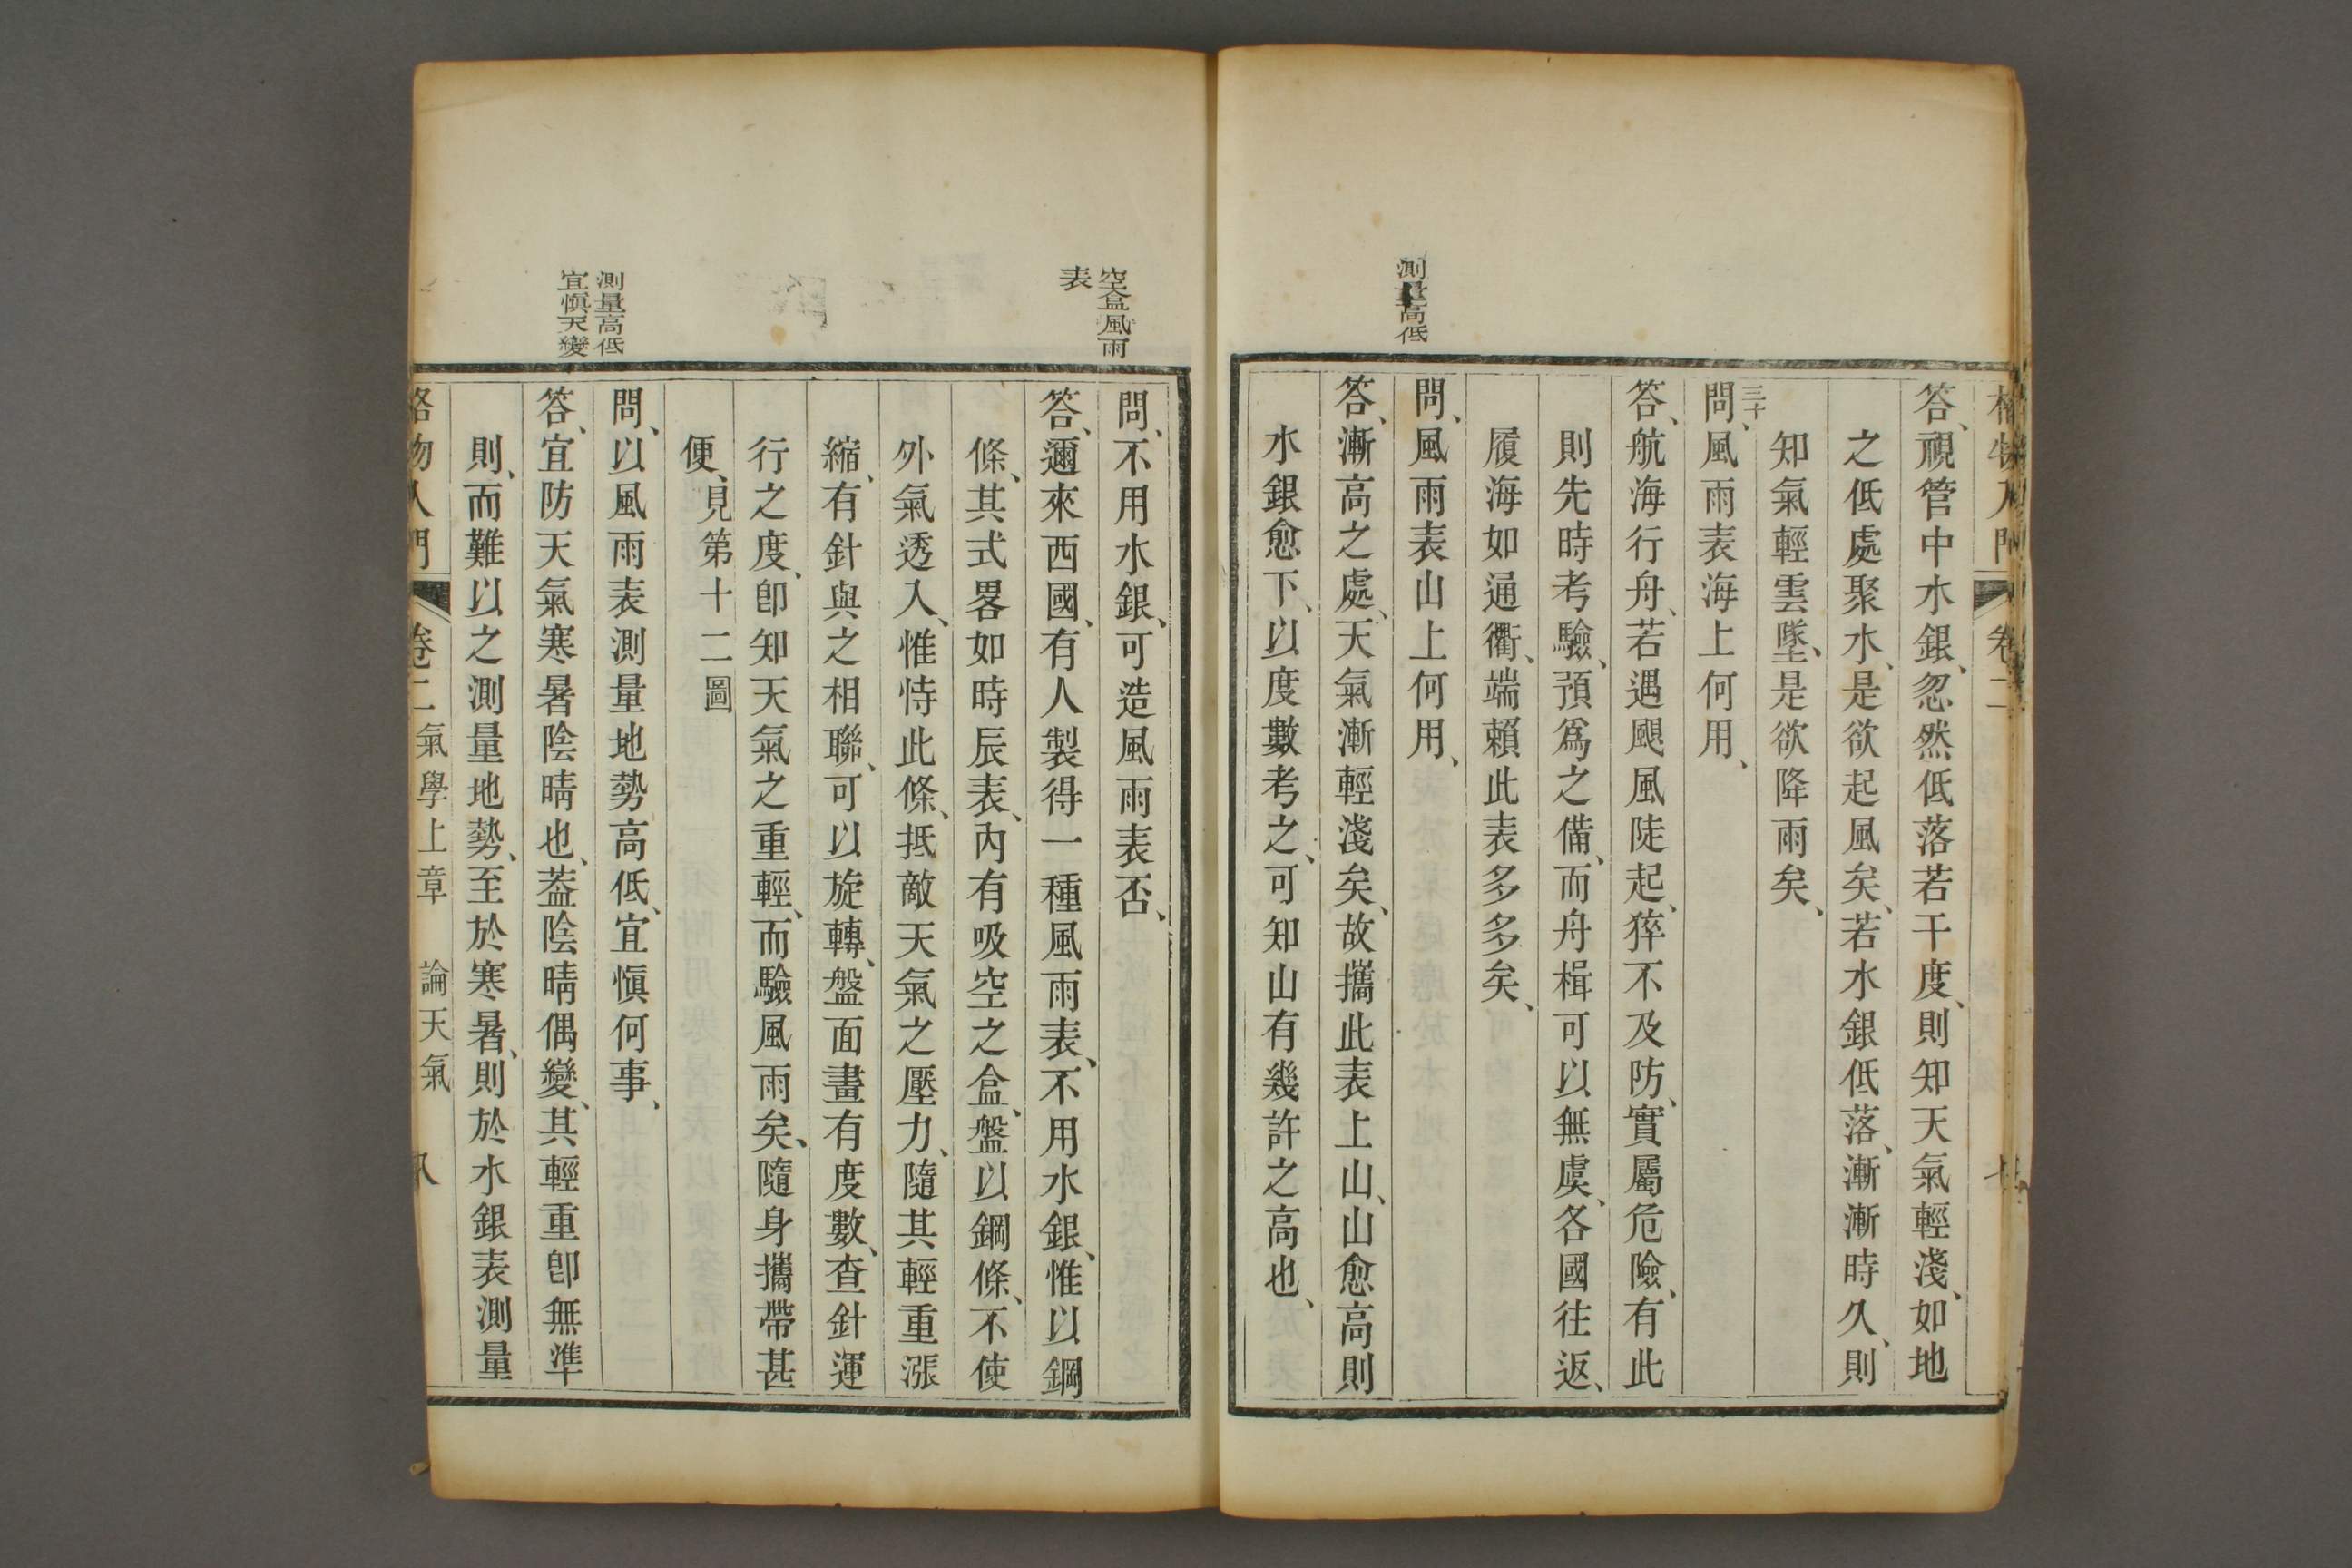 格物入門 卷二 七
答、視管中水銀、忽然低落若干度、則知天氣輕淺、如地
之低處聚水、是欲起風矣、若水銀低落、漸漸時久、則
知氣輕雲墜、是欲降雨矣、
三十
問、風雨表海上何用、
答、航海行舟、若遇颶風陡起、猝不及防、實屬危險、有此
則先時考驗、預爲之備、而舟楫可以無虞、各國往返、
履海如通衢、端賴此表多多矣、
測量高低
問、風雨表山上何用、
答、漸高之處、天氣漸輕淺矣、故攜此表上山、山愈高則
水銀愈下、以度數考之、可知山有幾許之高也、
空盒風雨
表
問、不用水銀、可造風雨表否、
答、邇來西國、有人製得一種風雨表、不用水銀、惟以鋼
條、其式畧如時辰表、內有吸空之盒、盤以鋼條、不使
外氣透入、惟恃此條、抵敵天氣之壓力、隨其輕重漲
縮、有針與之相聯、可以旋轉、盤面畫有度數、查針運
行之度、卽知天氣之重輕、而驗風雨矣、隨身攜帶甚
便、見第十二圖
測量高低
宜慎天變
問、以風雨表測量地勢高低、宜慎何事、
答、宜防天氣寒暑陰晴也、葢陰晴偶變、其輕重卽無準
則、而難以之測量地勢、至於寒暑、則於水銀表測量
格物入門 卷二 氣學上章 論天氣 八